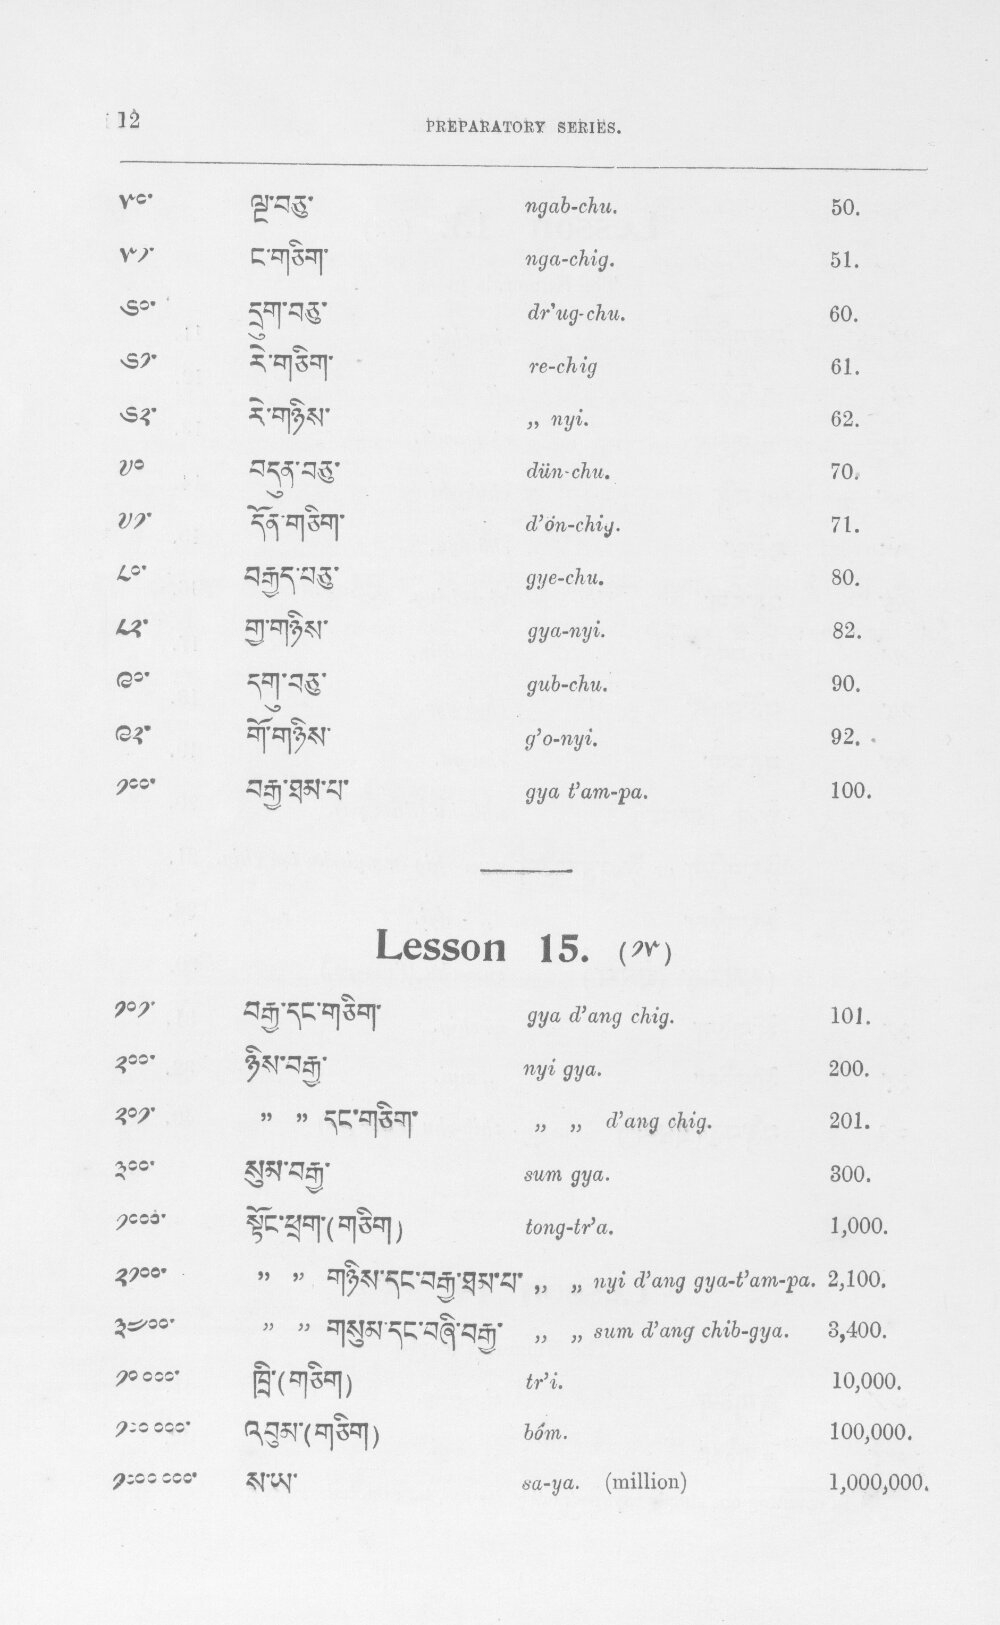 12 PREPARATORY SERIES.
༥༠་ ལྔ་བཅུ་ ngab-chu. 50.
༥༡་ ང་གཅིག་ nga-chig. 51.
༦༠་ དྲུག་བཅུ་ dr'ug-chu. 60.
༦༡་ རེ་གཅིག་ re-chig 61.
༦༢་ རེ་གཉིས་ „ nyi. 62.
༧༠ བདུན་བཅུ་ dün-chu. 70.
༧༡་ དོན་གཅིག་ d'ón-chig. 71.
༨༠་ བརྒྱད་བཅུ་ gye-chu. 80.
༨༢་ གྱ་གཉིས་ gya-nyi. 82.
༩༠་ དགུ་བཅུ་ gub-chu. 90.
༩༢་ གོ་གཉིས་ g'o-nyi. 92.
༡༠༠་ བརྒྱ་ཐམ་པ་ gya t'am-pa. 100.
Lesson 15. (༡༥)
༡༠༡་ བརྒྱ་དང་གཅིག་ gya d'ang chig. 101.
༢༠༠་ ཉིས་བརྒྱ་ nyi gya. 200.
༢༠༡་ „ „ དང་གཅིག་ „ „ d'ang chig. 201.
༣༠༠་ སུམ་བརྒྱ་ sum gya. 300.
༡༠༠༠་ སྟོང་ཕྲག་(གཅིག) tong-tr'a. 1,000.
༢༡༠༠་ „ „ གཉིས་དང་བརྒྱ་ཐམ་པ་ „ „ nyi d'ang gya-t'am-pa. 2,100.
༣༤༠༠་ „ „ གསུམ་དང་བཞི་བརྒྱ་ „ „ sum d'ang chib-gya. 3,400.
༡༠ ༠༠༠་ ཁྲི་(གཅིག) tr'i. 10,000.
༡༠༠ ༠༠༠་ འབུམ་(གཅིག) bóm. 100,000.
༡༠༠༠ ༠༠༠་ ས་ཡ་ sa-ya. (million) 1,000,000.